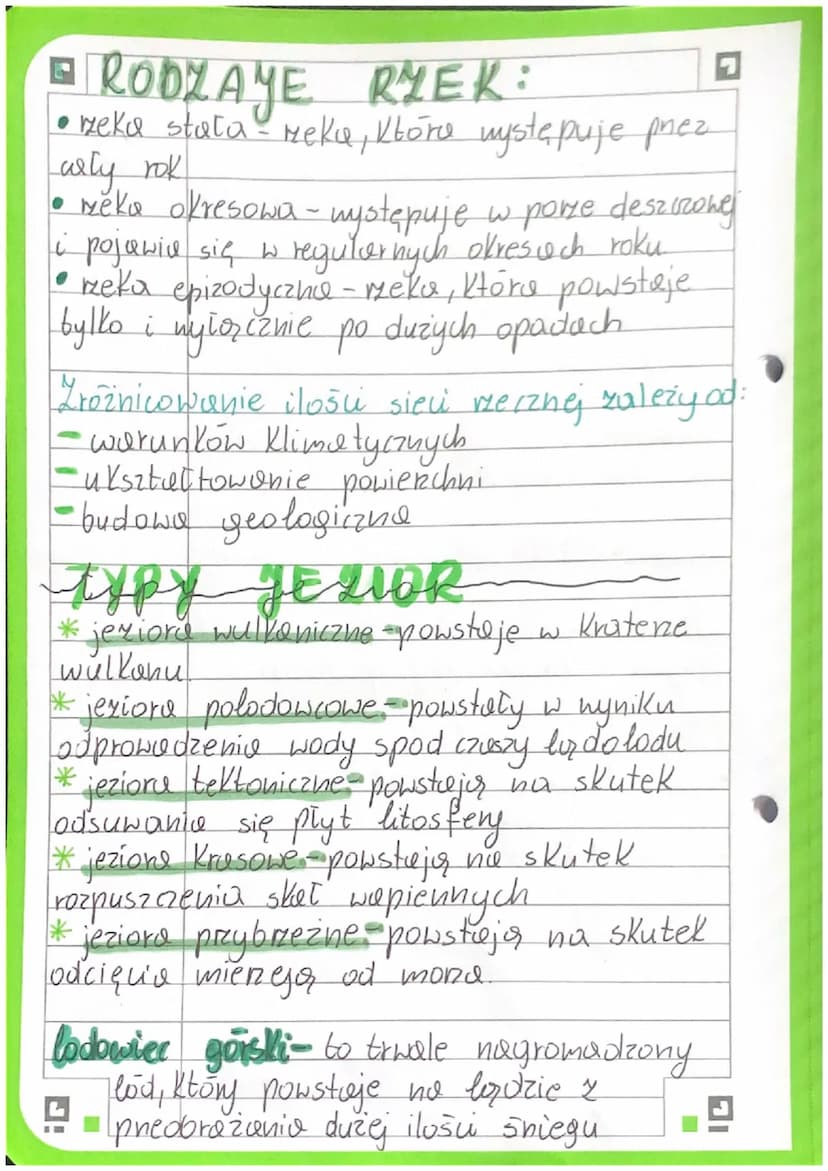 RODZAJE RZEK:
• rzeka stała - rzeka, która występuje przez
cały rok
• rzeka okresowa - występuje w porze deszczowej
i pojawia się w regularnych okresach roku
• rzeka epizodyczna - rzeka, która powstaje
tylko i wyłącznie po dużych opadach
Zróżnicowanie ilości sieci rzecznej zależy od:
- warunków klimatycznych
- ukształtowanie powierzchni
- budowa geologiczna
TYPY JEZIOR
* jeziora wulkaniczne - powstaje w kraterze
wulkanu
* jeziora polodowcowe - powstały w wyniku
odprowadzenia wody spod czaszy lądolodu
* jeziora tektoniczne - powstają na skutek
odsuwania się płyt litosfery
* jeziora krasowe - powstają na skutek
rozpuszczenia skał wapiennych
* jeziora przybrzeżne - powstają na skutek
odcięcia mierzeją od morza.
lodowiec górski - to trwale nagromadzony
lód, który powstaje na lądzie z
przeobrażania dużej ilości śniegu